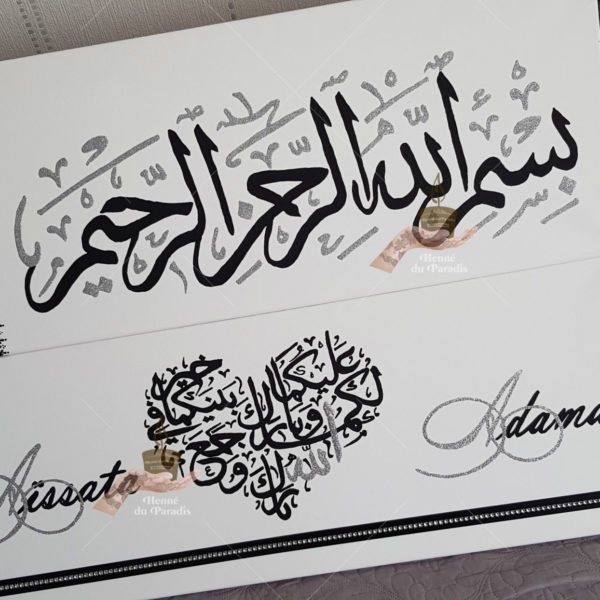 بِسْمِ اللَّهِ الرَّحْمَٰنِ الرَّحِيمِ
Henné
du Paradis
Aïssata
بارك الله لكما وبارك عليكما وجمع بينكما في خير
Adama
Henné
du Paradis